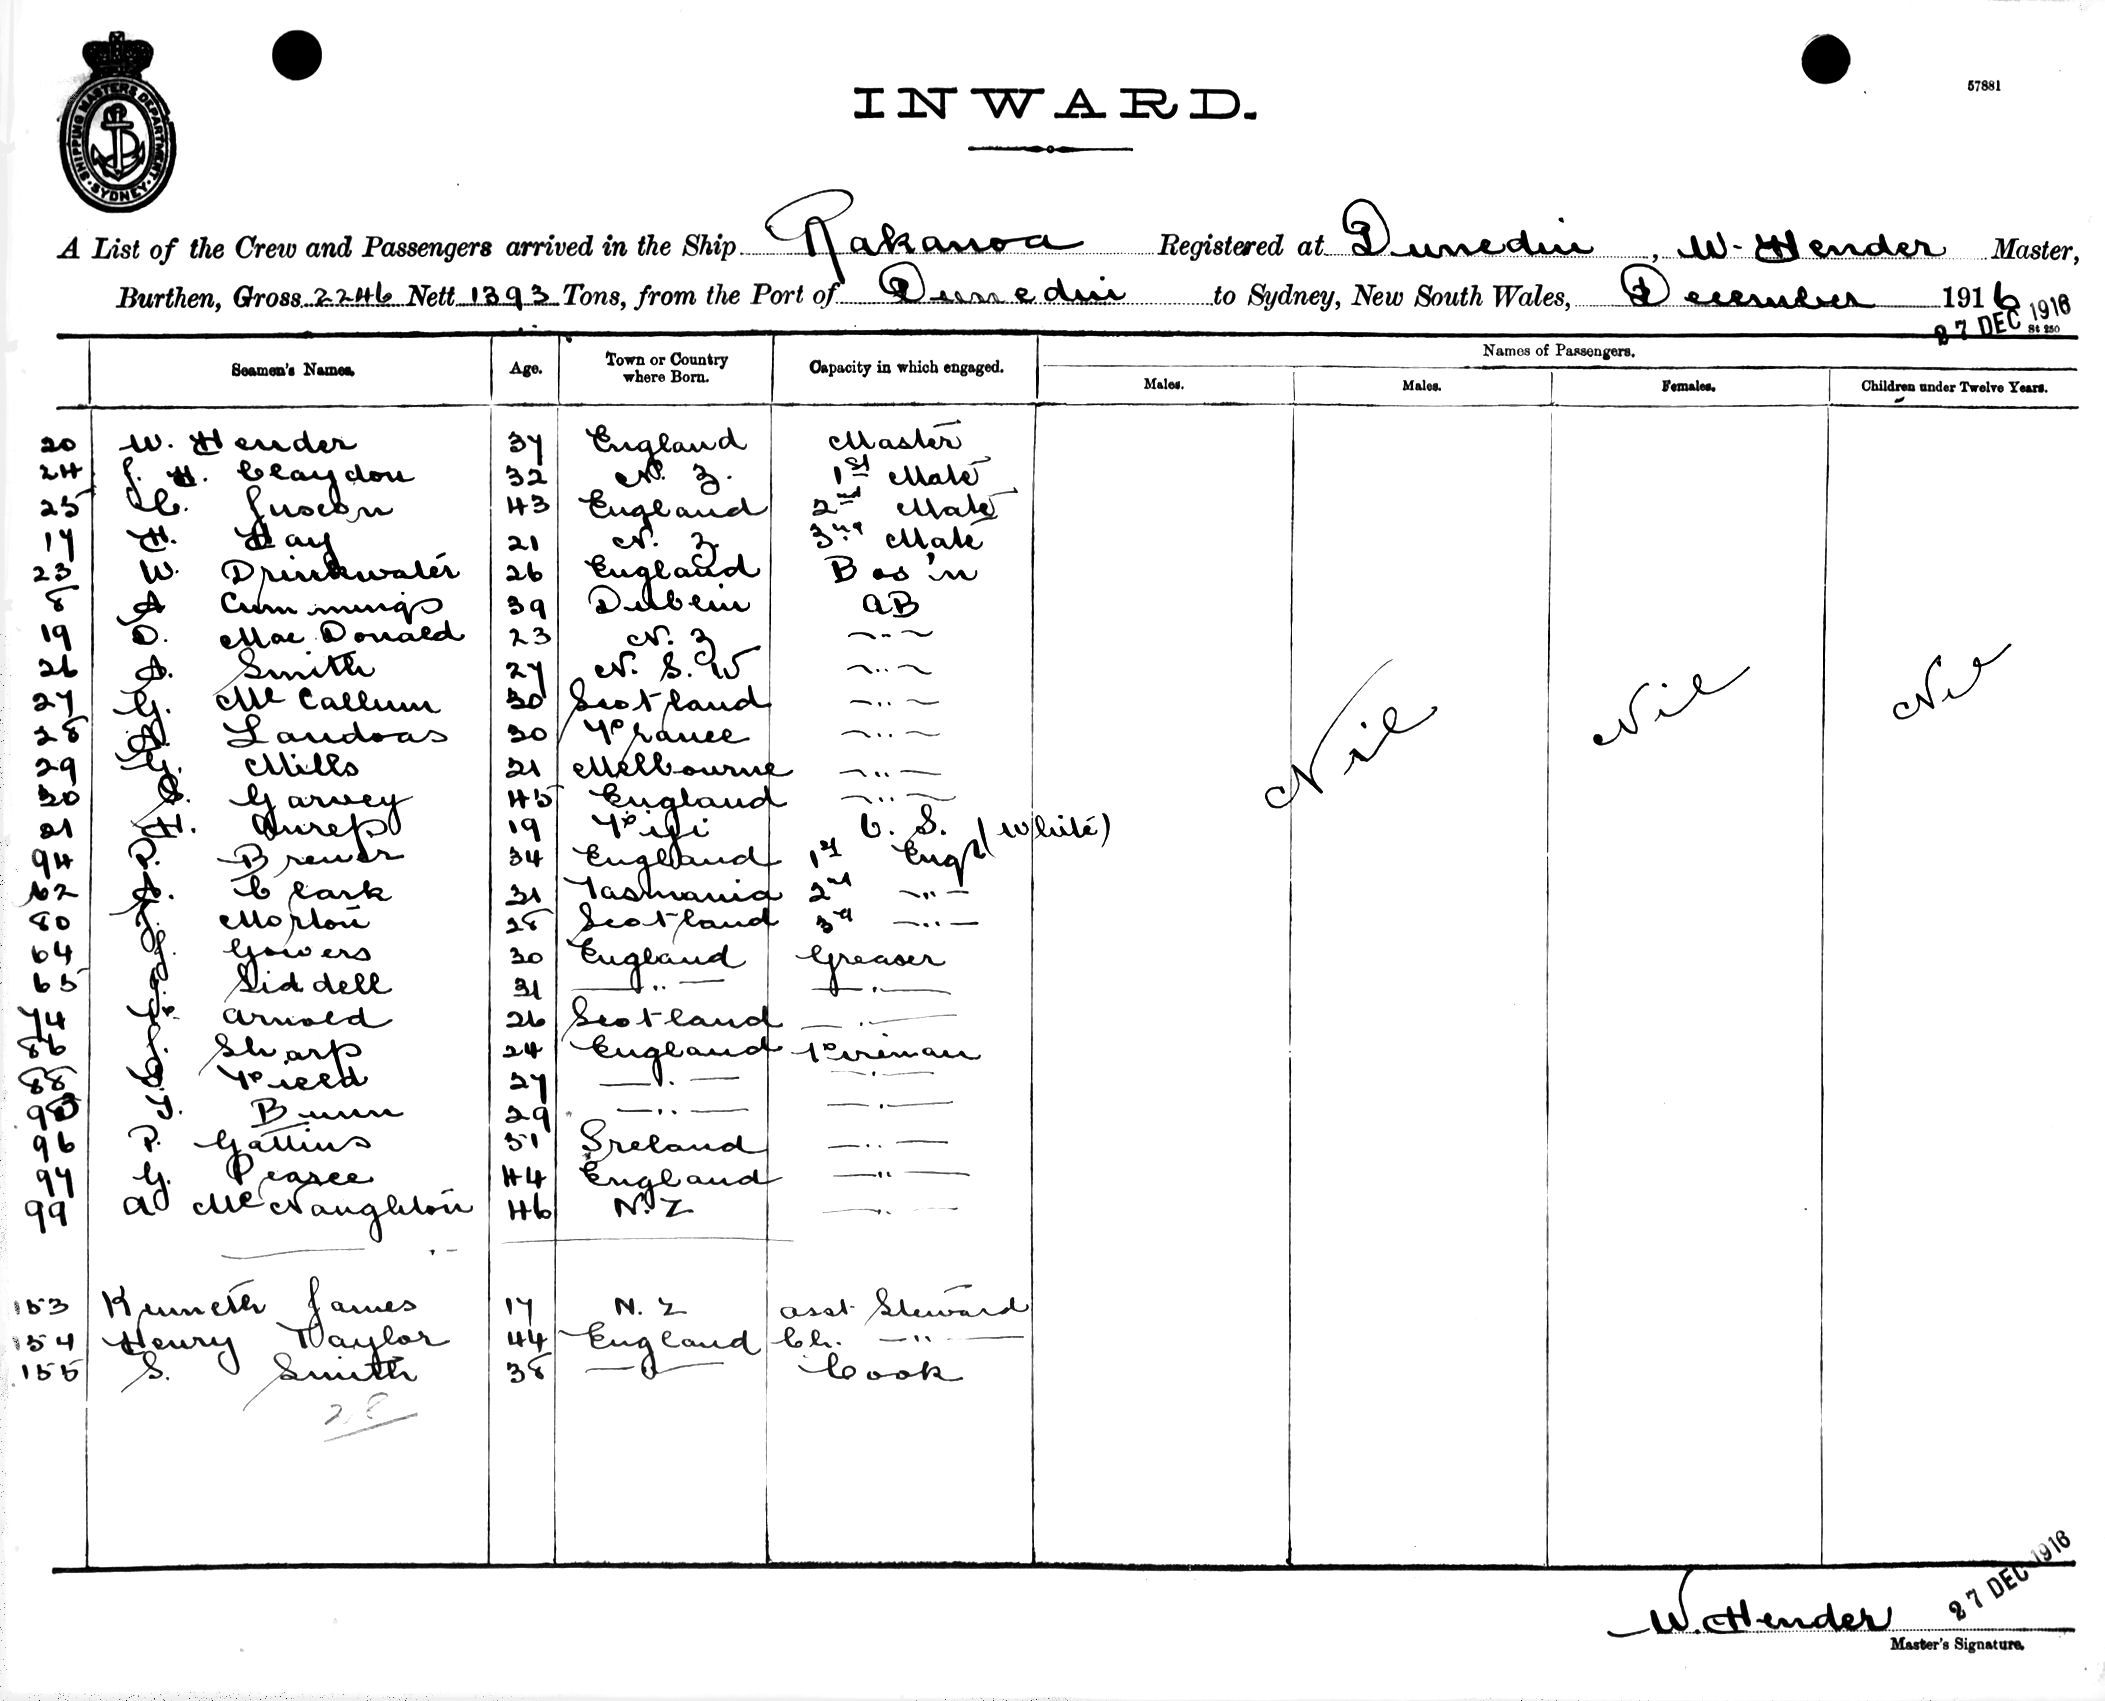 SHIPPING MASTERS DEPARTMENT
SYDNEY
57881
INWARD.
A List of the Crew and Passengers arrived in the Ship Rakanoa Registered at Dunedin, W. Hender Master,
Burthen, Gross 2246 Nett 1393 Tons, from the Port of Dunedin to Sydney, New South Wales, December 1916
27 DEC 1916
St 250
Seamen's Names. Age. Town or Country where Born. Capacity in which engaged. Names of Passengers.
Males. Males. Females. Children under Twelve Years.
20 W. Hender 37 England Master
24 J. H. Claydon 32 N. Z. 1st Mate
25 C. 43 England 2nd Mate
17 H. Hay 21 N. Z. 3rd Mate
23 W. Drinkwater 26 England Bos'n
8 A Cummings 39 Dublin AB
19 D. MacDonald 23 N. Z —..—
26 A. Smith 27 N. S. W —..—
27 G. McCallum 30 Scotland —..—
28 Landoas 30 France —..—
29 G. Mills 21 Melbourne —..—
30 S. Garvey 45 England —..—
21 H. 19 Fiji O. S. (White)
94 P. Brewer 34 England 1st Engr
62 A. Clark 31 Tasmania 2nd —..—
80 J. Morton 28 Scotland 3rd —..—
64 J. Gowers 30 England Greaser
65 Siddell 31 —..— —..—
74 F. Arnold 26 Scotland —..—
86 J. Sharp 24 England Fireman
88 Field 27 —..— —..—
98 J. Bunn 29 —..— —..—
96 P. Gattins 51 Ireland —..—
97 G. Pearce 44 England —..—
99 A McNaughton 46 N. Z —..—
153 Kenneth James 17 N. Z asst Steward
154 Henry Taylor 44 England Ch. —..—
155 S. Smith 38 —..— Cook
28
Nil Nil Nil
W. Hender
27 DEC 1916
Master's Signature.